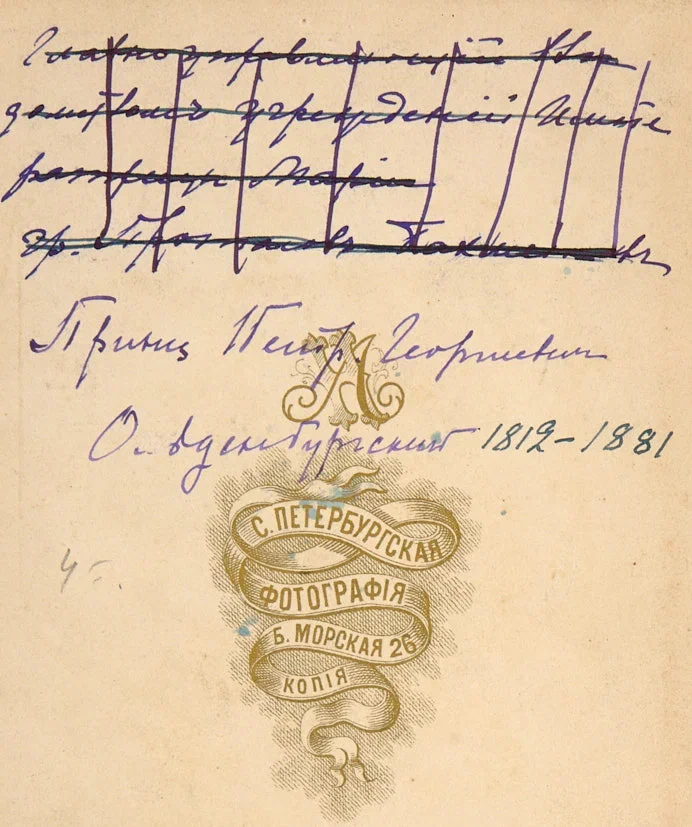 Главноуправляющий Вѣ
домствомъ учрежденій Импе
ратрицы Маріи
гр. Протасовъ Бахметевъ
Принц Петр. Георгиевич
Ольденбургский 1812-1881
С. ПЕТЕРБУРГСКАЯ
ФОТОГРАФІЯ
Б. МОРСКАЯ 26
КОПІЯ
4-